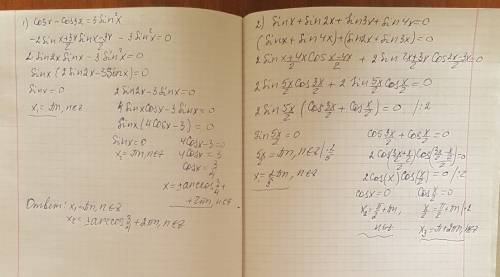 1) cosx-cos3x=3sin²x
-2sin (x+3x)/2 sin (x-3x)/2 - 3sin²x=0
2 sin2x sinx - 3 sin²x=0
sinx (2sin2x-3sinx)=0
sinx=0 2sin2x-3sinx=0
x₁=πn, n∈z 4sinxcosx-3sinx=0
sinx(4cosx-3)=0
sinx=0 4cosx-3=0
x₂=πn, n∈z 4cosx=3
cosx=3/4
x=±arccos 3/4 +
+2πn, n∈z.
Ответ: x₁=πn, n∈z
x₂=±arccos 3/4 +2πn, n∈z
2) sinx+sin2x+sin3x+sin4x=0
(sinx+sin4x)+(sin2x+sin3x)=0
2sin (x+4x)/2 cos (x-4x)/2 + 2sin (2x+3x)/2 cos (2x-3x)/2=0
2sin 5x/2 cos 3x/2 + 2 sin 5x/2 cos x/2=0
2sin 5x/2 (cos 3x/2 + cos x/2)=0 /:2
sin 5x/2=0 cos 3x/2+cos x/2=0
5x/2=πn, n∈z |·2/5 2cos(x)cos(x/2)=0 /:2
x=2/5 πn, n∈z cosx=0 cos x/2=0
x₂=π/2+πn, x/2=π/2+πn |·2
n∈z x₃=π+2πn, n∈z